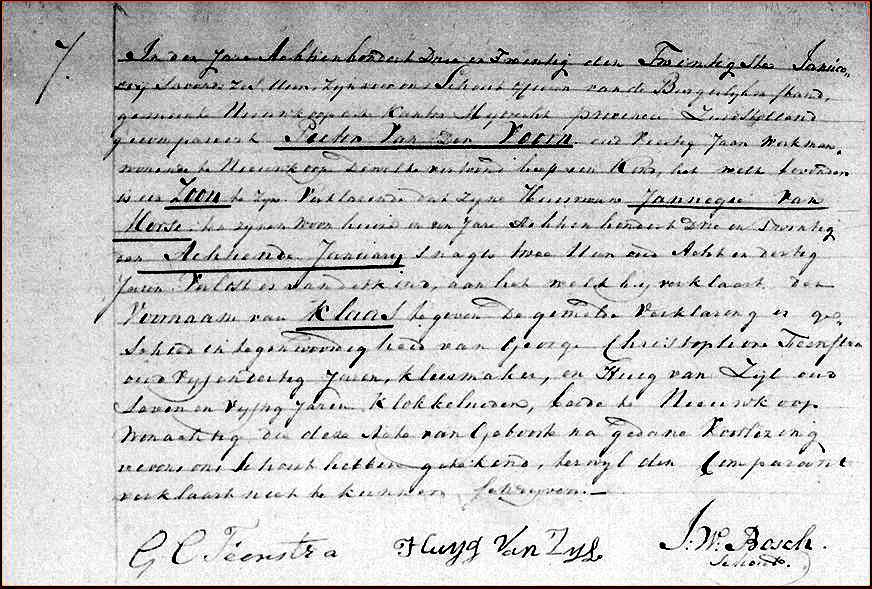 7.
In den Jare Achtienhondert Drie en Twintig den Twintigste Janua-
ry savons zes Uur, zyn voor ons Schout Officier van de Burgerlyken stand,
gemeente Nieuwkoop en Kanton Provincie Zuidholland
gecompareert Pieter Van Der Voorn oud Veertig Jaar Werkman,
wonende te Nieuwkoop Dewelke vertoond heeft een Kind, het welk bevonden
is een Zoon te zyn Verklarende dat zyne Huisvrouw Jannegie Van
Horse te zynen woon huise in den Jare Achtienhondert Drie en Twintig
den Achtiende January s nagts twee Uuren oud Acht en dertig
Jaren Verlost is van dit kind, aan het welk hy verklaart den
Voornaam van Klaas te geven De gemelde Verklaring is ge-
schied in tegenwoordigheid van George Christophore Teenstra
oud Vyf en dertig Jaren, Kleermaker, en Huig van Zyl oud
Seven en Vyftig Jaren Klokkeluider, beide te Nieuwkoop
Wonachtig die deze Acte van Geboorte na gedane Voorlezing
nevens ons Schout hebben getekend, terwyl den Comparant
verklaart niet te kunnen schryven.—
G C Teenstra Huyg Van Zyl J. W. Bosch.
Schout.